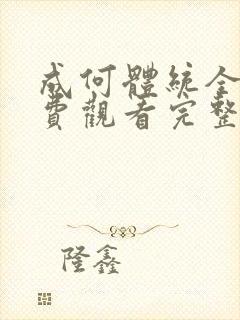 成何體統全
費觀看完整
隆鑫